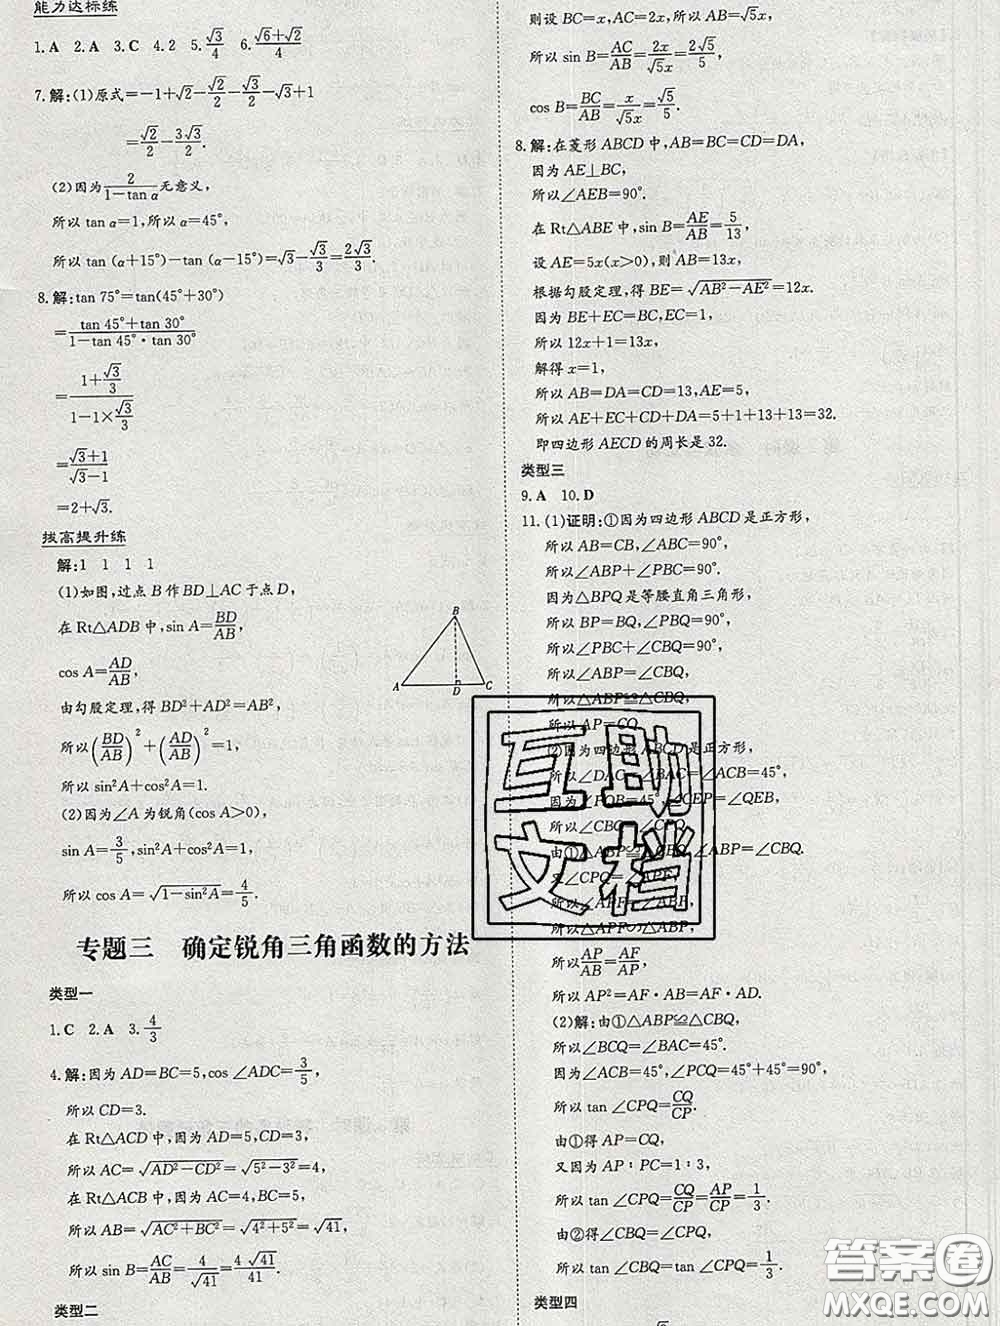 能力达标练
1. A 2. A 3. C 4. 2 5. √3/4 6. (√6+√2)/4
7. 解:(1)原式=-1+√2-√2/2-√3/2-√3+1
=√2/2-3√3/2.
(2)因为2/(1-tan α)无意义,
所以 tan α=1,所以 α=45°,
所以 tan (α+15°)-tan (α-15°)=√3-√3/3=2√3/3.
8. 解:tan 75°=tan(45°+30°)
=(tan 45°+tan 30°)/(1-tan 45°·tan 30°)
=(1+√3/3)/(1-1×√3/3)
=(√3+1)/(√3-1)
=2+√3.
拔高提升练
解:1 1 1 1
(1)如图,过点 B 作 BD⊥AC 于点 D,
在 Rt△ADB 中,sin A=BD/AB,
cos A=AD/AB,
由勾股定理,得 BD²+AD²=AB²,
所以(BD/AB)²+(AD/AB)²=1,
所以 sin²A+cos²A=1.
(2)因为∠A 为锐角(cos A>0),
sin A=3/5,sin²A+cos²A=1,
所以 cos A=√(1-sin²A)=4/5.
B
A D C
专题三 确定锐角三角函数的方法
类型一
1. C 2. A 3. 4/3
4. 解:因为 AD=BC=5,cos ∠ADC=3/5,
所以 CD=3.
在 Rt△ACD 中,因为 AD=5,CD=3,
所以 AC=√(AD²-CD²)=√(5²-3²)=4,
在 Rt△ACB 中,因为 AC=4,BC=5,
所以 AB=√(AC²+BC²)=√(4²+5²)=√41,
所以 sin B=AC/AB=4/√41=4√41/41.
类型二
则设 BC=x,AC=2x,所以 AB=√5x,
所以 sin B=AC/AB=2x/√5x=2√5/5,
cos B=BC/AB=x/√5x=√5/5.
8. 解:在菱形 ABCD 中,AB=BC=CD=DA,
因为 AE⊥BC,
所以∠AEB=90°.
在 Rt△ABE 中,sin B=AE/AB=5/13,
设 AE=5x(x>0),则 AB=13x,
根据勾股定理,得 BE=√(AB²-AE²)=12x.
因为 BE+EC=BC,EC=1,
所以 12x+1=13x,
解得 x=1,
所以 AB=DA=CD=13,AE=5,
所以 AE+EC+CD+DA=5+1+13+13=32.
即四边形 AECD 的周长是 32.
类型三
9. A 10. D
11. (1)证明:①因为四边形 ABCD 是正方形,
所以 AB=CB,∠ABC=90°,
所以∠ABP+∠PBC=90°.
因为△BPQ 是等腰直角三角形,
所以 BP=BQ,∠PBQ=90°,
所以∠PBC+∠CBQ=90°,
所以∠ABP=∠CBQ,
所以△ABP≌△CBQ,
所以 AP=CQ.
②因为四边形 ABCD 是正方形,
所以∠DAC=∠BAC=∠ACB=45°,
因为∠PQB=45°,∠CEP=∠QEB,
所以∠CBQ=∠CPQ.
由①△ABP≌△CBQ,∠ABP=∠CBQ.
又∠CPQ=∠APF,
所以∠APF=∠ABP,
所以△APF∽△ABP,
所以AP/AB=AF/AP,
所以 AP²=AF·AB=AF·AD.
(2)解:由①△ABP≌△CBQ,
所以∠BCQ=∠BAC=45°.
因为∠ACB=45°,∠PCQ=45°+45°=90°,
所以 tan ∠CPQ=CQ/CP,
由①得 AP=CQ,
又因为 AP∶PC=1∶3,
所以 tan ∠CPQ=CQ/CP=AP/CP=1/3.
由②得∠CBQ=∠CPQ,
所以 tan ∠CBQ=tan ∠CPQ=1/3.
类型四
互助
文档
答案圈
MXQE.COM